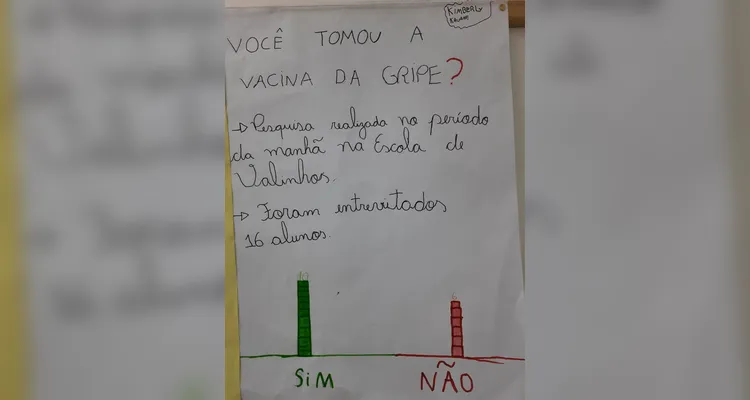 KIMBERLY
VOCÊ TOMOU A
VACINA DA GRIPE?
→ Pesquisa realizada no período
da manhã na Escola de
Valinhos.
→ Foram entrevitados
16 alunos.
10
6
SiM
NÃO